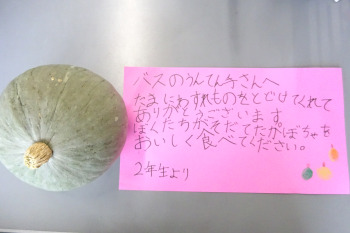 バスのうんてん手さんへ
たまにわすれものをとどけてくれて
ありがとうございます。
ぼくたちがそだてたかぼちゃを
おいしく食べてください。
2年生より